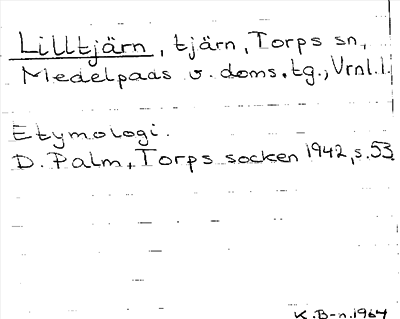 Lilltjärn, tjärn, Torps sn,
Medelpads v. doms.tg., Vrnl.l.
Etymologi.
D. Palm, Torps socken 1942, s.53.
K.B-n.1967